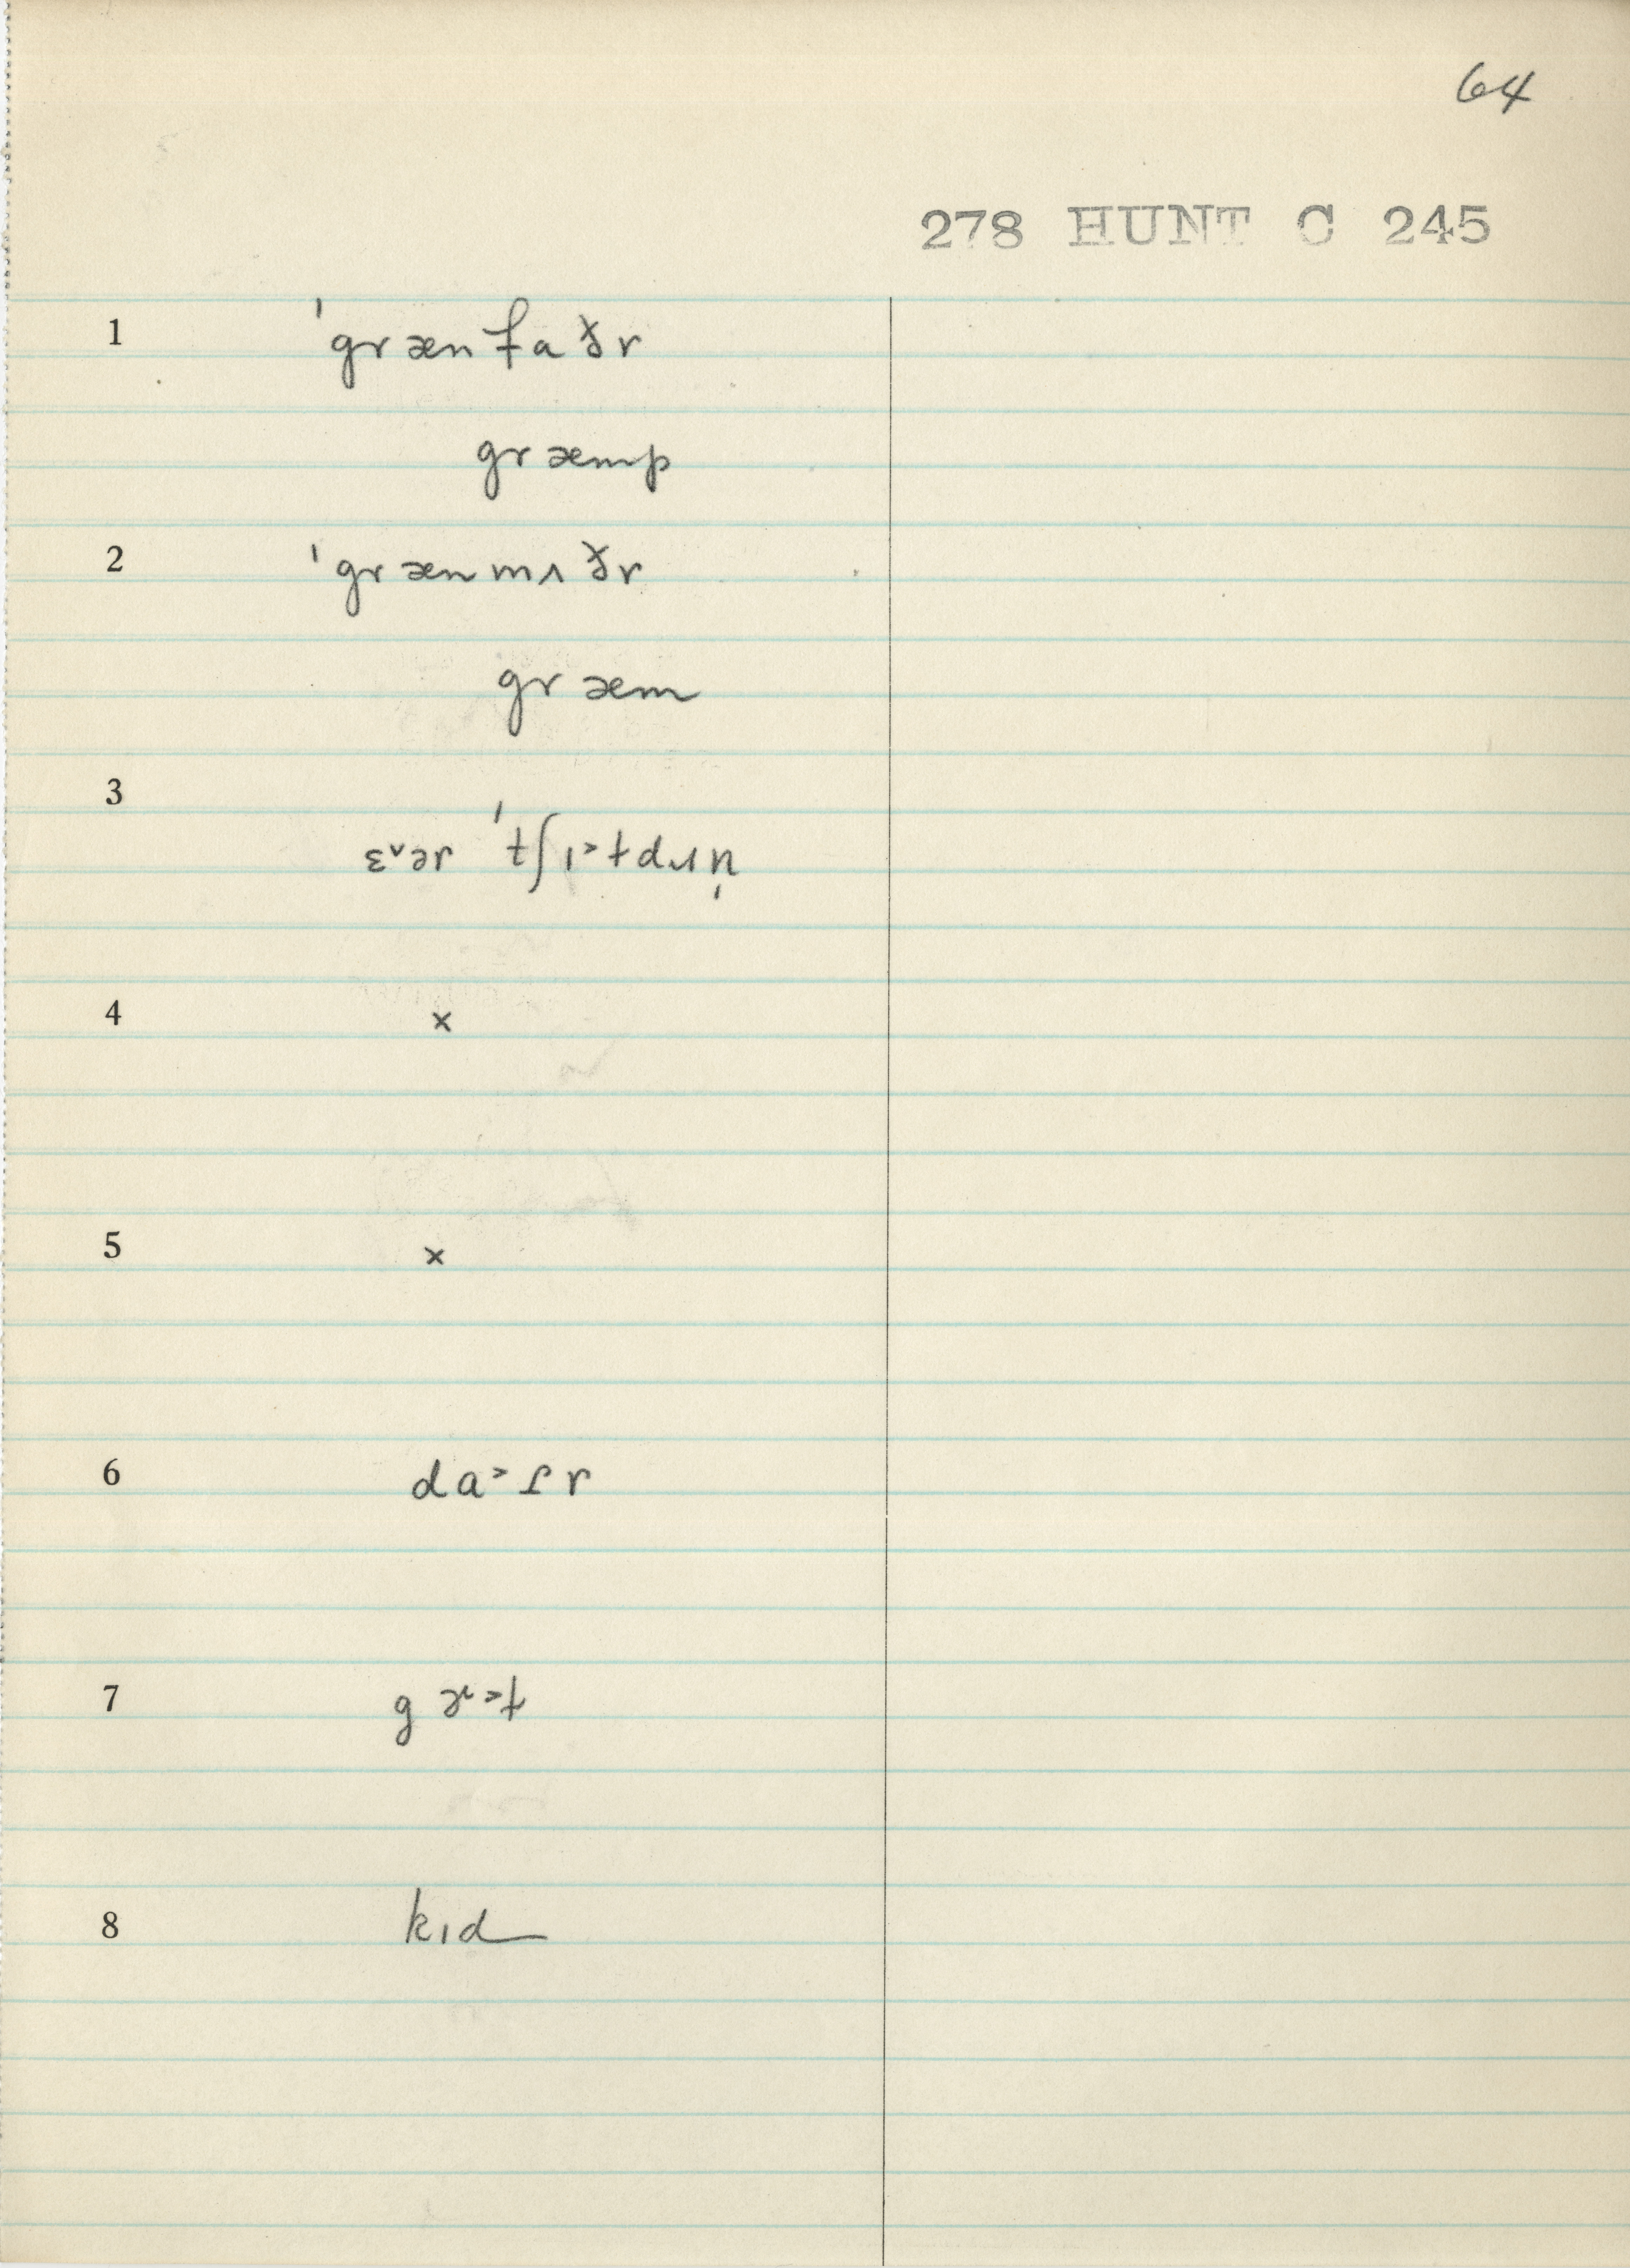 64
278 HUNT C 245
1 ˈgrænfaðr
græmp
2 ˈgrænmʌðr
græm
3
4 ×
5 ×
6 da˃ɾr
7
8 kɪd